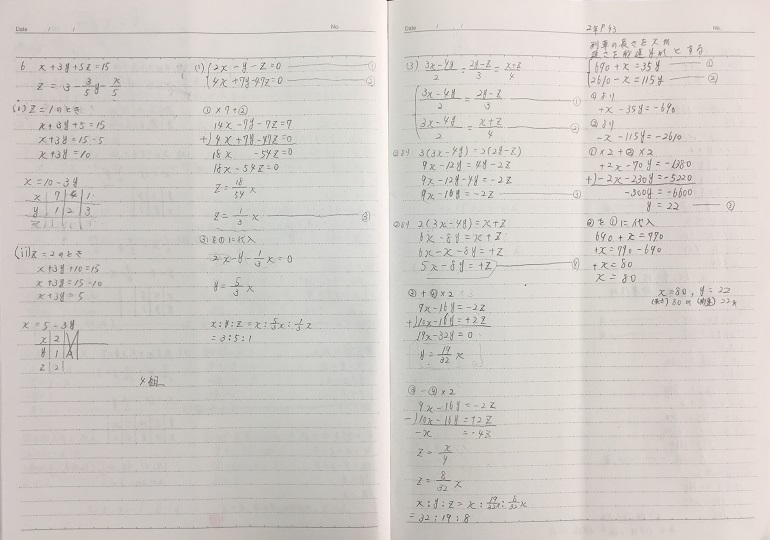 Date / / No.
6 x+3y+5z=15
z = 3 - 3/5 y - x/5
(i) z=1のとき
x+3y+5=15
x+3y=15-5
x+3y=10
x=10-3y
x 7 4 1
y 1 2 3
(ii) z=2のとき
x+3y+10=15
x+3y=15-10
x+3y=5
x=5-3y
x 2
y 1
z 2
4組
(1) {2x-y-z=0 ①
4x+7y-47z=0 ②
①×7+②
14x-7y-7z=7
+) 4x+7y-47z=0
18x -54z=0
18x-54z=0
z=18/54 x
z=1/3 x ③
③を①に代入
2x-y-1/3 x=0
y=5/3 x
x:y:z=x:5/3 x:1/3 x
=3:5:1
Date / / No.
2年P43
(3) (3x-4y)/2 = (2y-z)/3 = (x+z)/4
{(3x-4y)/2 = (2y-z)/3 ①
(3x-4y)/2 = (x+z)/4 ②
①より 3(3x-4y)=2(2y-z)
9x-12y=4y-2z
9x-12y-4y=-2z
9x-16y=-2z ③
②より 2(3x-4y)=x+z
6x-8y=x+z
6x-x-8y=+z
5x-8y=+z ④
③+④×2
9x-16y=-2z
+) 10x-16y=+2z
19x-32y=0
y=19/32 x
③-④×2
9x-16y=-2z
-) 10x-16y=+2z
-x =-4z
z=x/4
z=8/32 x
=32:19:8
列車の長さをxm
速さを秒速ymとする
{690+x=35y ①
2610-x=115y ②
①より
+x-35y=-690
②より
-x-115y=-2610
①×2+②×2
+2x-70y=-1380
+) -2x-230y=-5220
-300y=-6600
y=22 ③
③を①に代入
690+x=770
+x=770-690
+x=80
x=80
x=80, y=22
(長さ) 80m (秒速) 22m